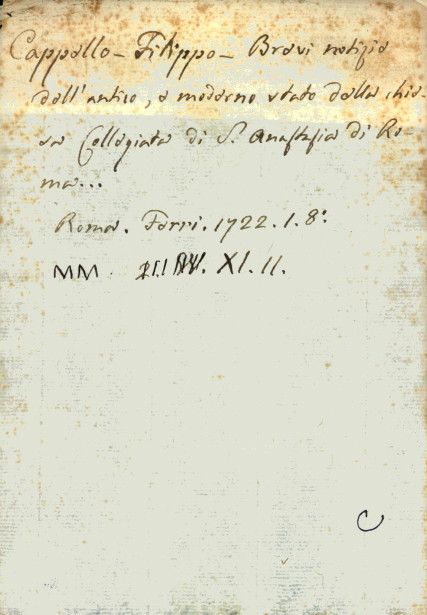 Cappello - Filippo - Brevi notizie
dell'antico, e moderno stato della chie-
sa Collegiata di S. Anastasia di Ro-
ma...
Roma. Ferri. 1722. 1. 8°.
MM XI. 11.
C